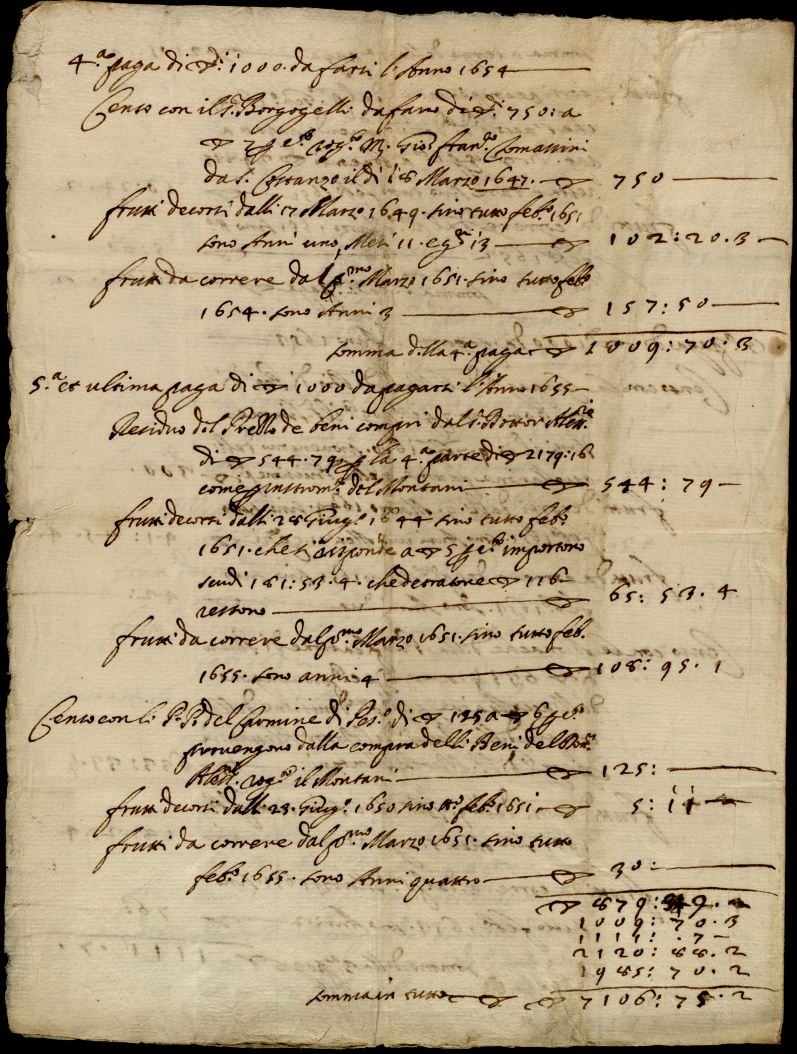 4.ª paga di ▽.di 1000. da farsi l'Anno 1654
Censo con il S.r Borgogelli da fano di ▽.di 750: a
▽ 7 p c.to rog.o M. Gio: fran.co Comassini
da S. Costanzo il dì 18 Marzo 1647. ▽ 750
frutti decorsi dalli 17 Marzo 1649. sino tutto feb.o 1651
sono Anni uno, Mesi 11. e g.ni 13 ▽ 102:20.3
frutti da correre dal p.mo Marzo 1651. sino tutto feb.o
1654. sono Anni 3 ▽ 157:50
somma della 4.ª paga ▽ 1009:70.3
5.ª et ultima paga di ▽ 1000 da pagarsi l'Anno 1655
Residuo del Prezzo de beni compri dal S. Dottor
di ▽ 544.79 p la 4.ª parte di ▽ 2179:16
come p instrom.to del Montani 544:79
frutti decorsi dalli 28 Giug.o 1644 sino tutto feb.o
1651. che si risponde a ▽ 5 p c.to importono
scudi 181:53.4. che detratone ▽ 116
restono 65:53.4
frutti da correre dal p.mo Marzo 1651. sino tutto feb.
1655. sono anni 4 ▽ 108:95.1
Censo con li P.P. del Carmine di Pes.o di ▽ 125 a ▽ 6 p c.to
provengono dalla compra delli Beni del
rog.o il Montani ▽ 125:
frutti decorsi dalli 23. Giug.o 1650 sino tt.o feb.o 1651. ▽ 5:11
frutti da correre dal p.mo Marzo 1651. sino tutto
feb.o 1655. sono Anni quattro ▽ 30:
▽ 879:
1009:70.3
1111: .7
2120:88.2
1985:70.2
somma in tutto ▽ 7106:75.2